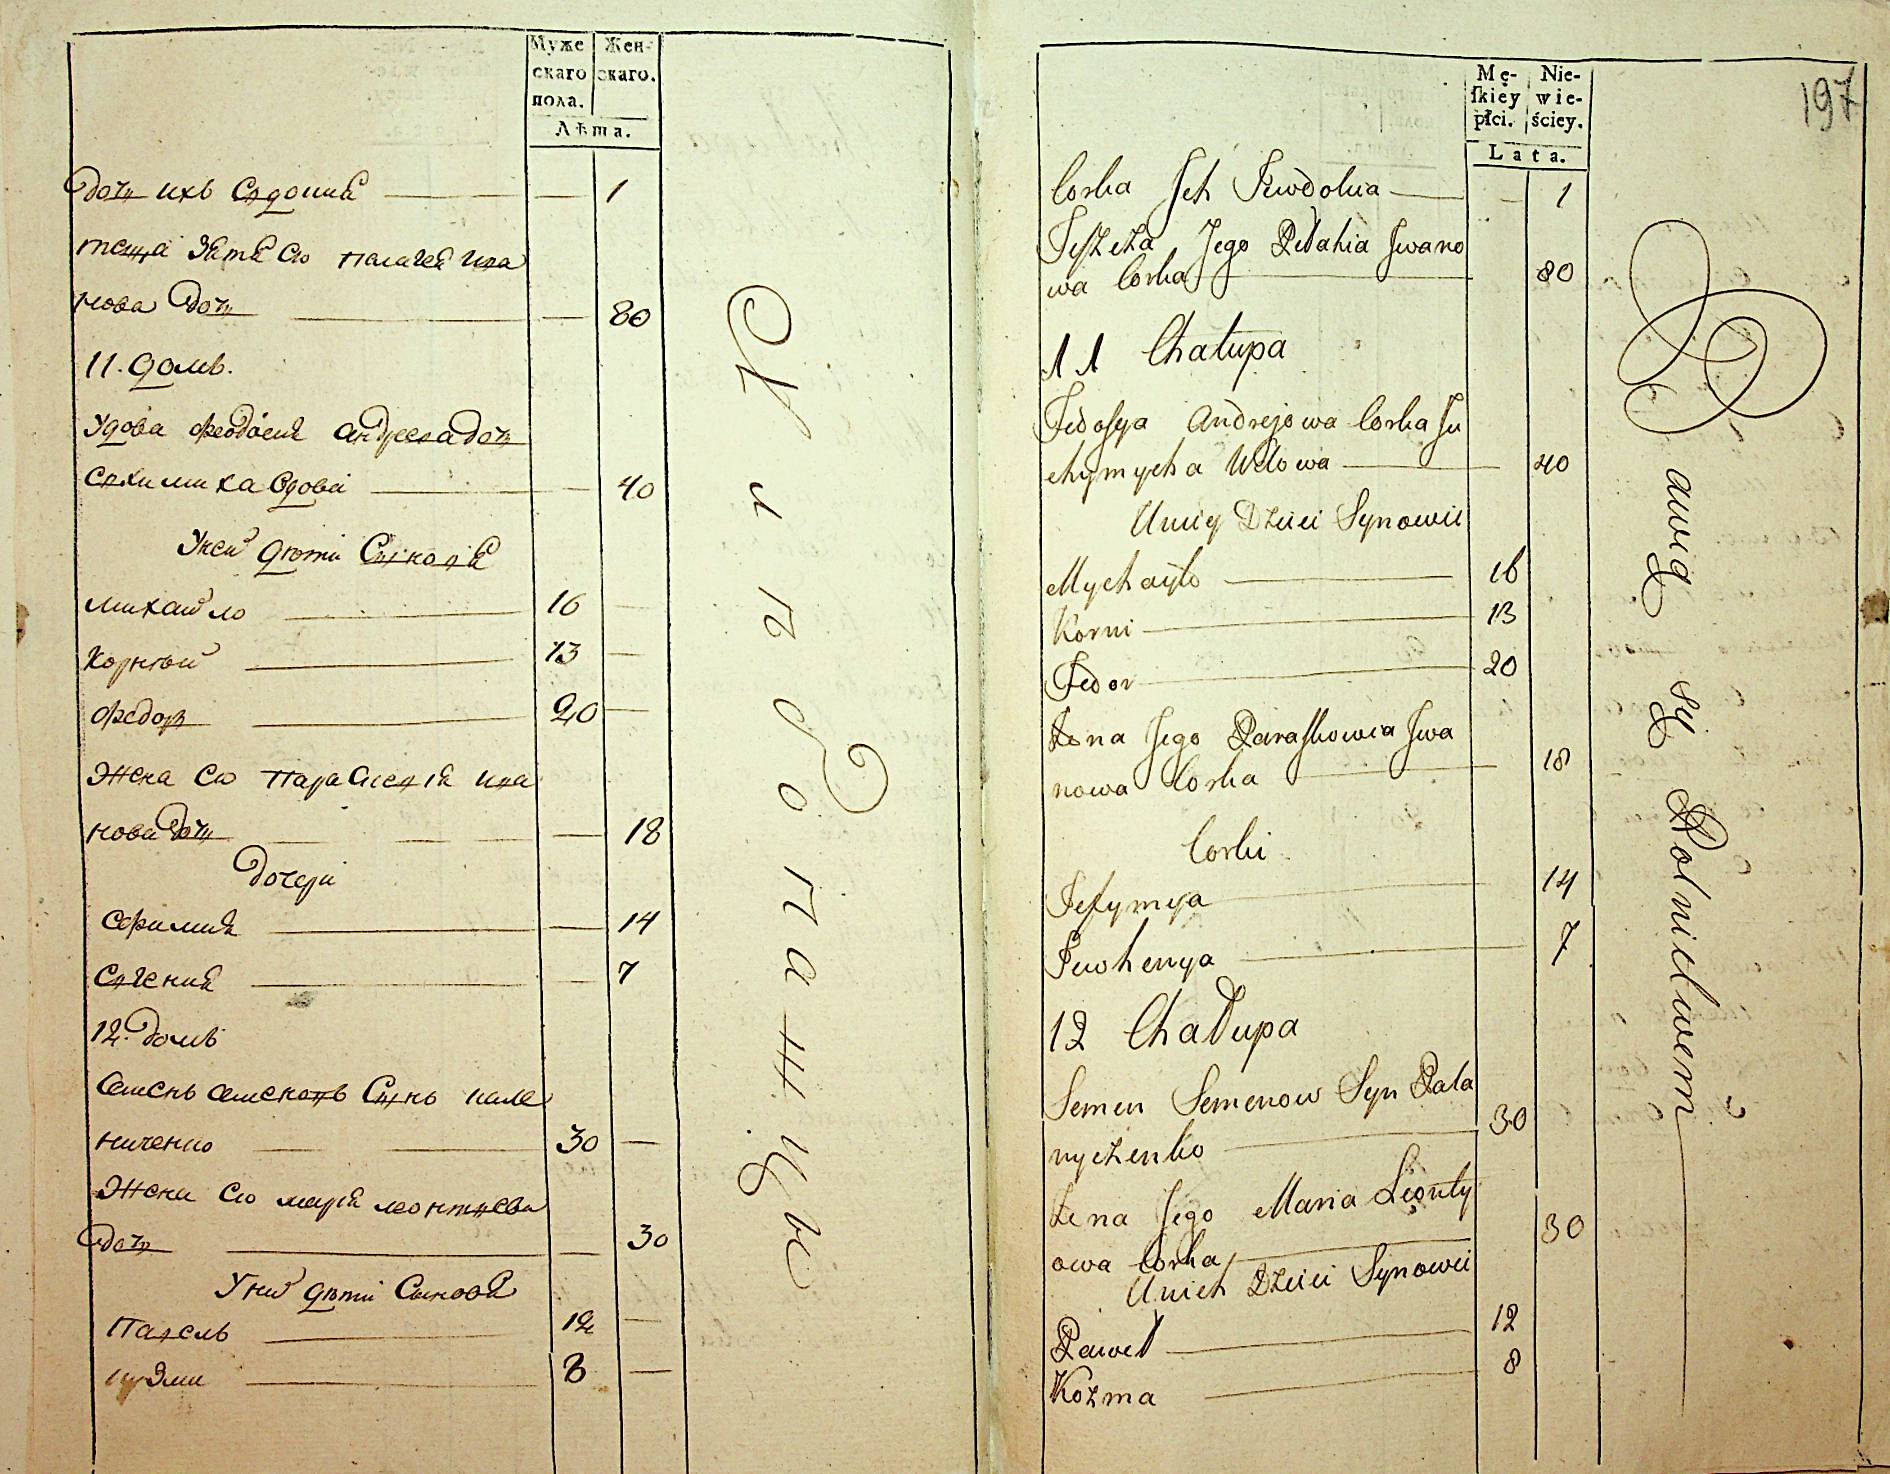 Муже
скаго
пола.
Жен-
скаго.
Лѣта.
дочь ихъ Евдокия 1
теща Зятя Ево Палагея Ива
нова дочь 80
11. домъ.
Удова Феодосия Андреева дочь
Ехимиха вдова 40
У неи дети Сыновя
михаило 16
Корнѣй 13
Федоръ 20
Жена Ево Парасковия Ива
нова дочь 18
дочери
Ефимия 14
Евгения 7
12. домъ
Семенъ Семеновъ Сынъ
30
Жена Ево Мария Леонтьева
дочь 30
У них дети Сынов
Павелъ 12
Кузма 8
197
Mę-
ſkiey
płci.
Nie-
wie-
ściey.
Lata.
Corka Jch Jewdokia 1
Teszcza Jego Pelahia Jwano
wa Corka 80
11 Chałupa
Fedosya Andrejowa Corka Ju
chymycha Wdowa 40
U niey Dzieci Synowie
Mychayło 16
Korni 13
Fedor 20
Żona Jego Paraskowia Jwa
nowa Corka 18
Corki
Jefymya 14
Jewhenya 7
12 Chałupa
Semen Semenow Syn Pala
nyczenko 30
Żena Jego Maria Leonty
owa Corka 30
U nich Dzieci Synowie
Paweł 12
Kozma 8
Bawią się Rolnictwem